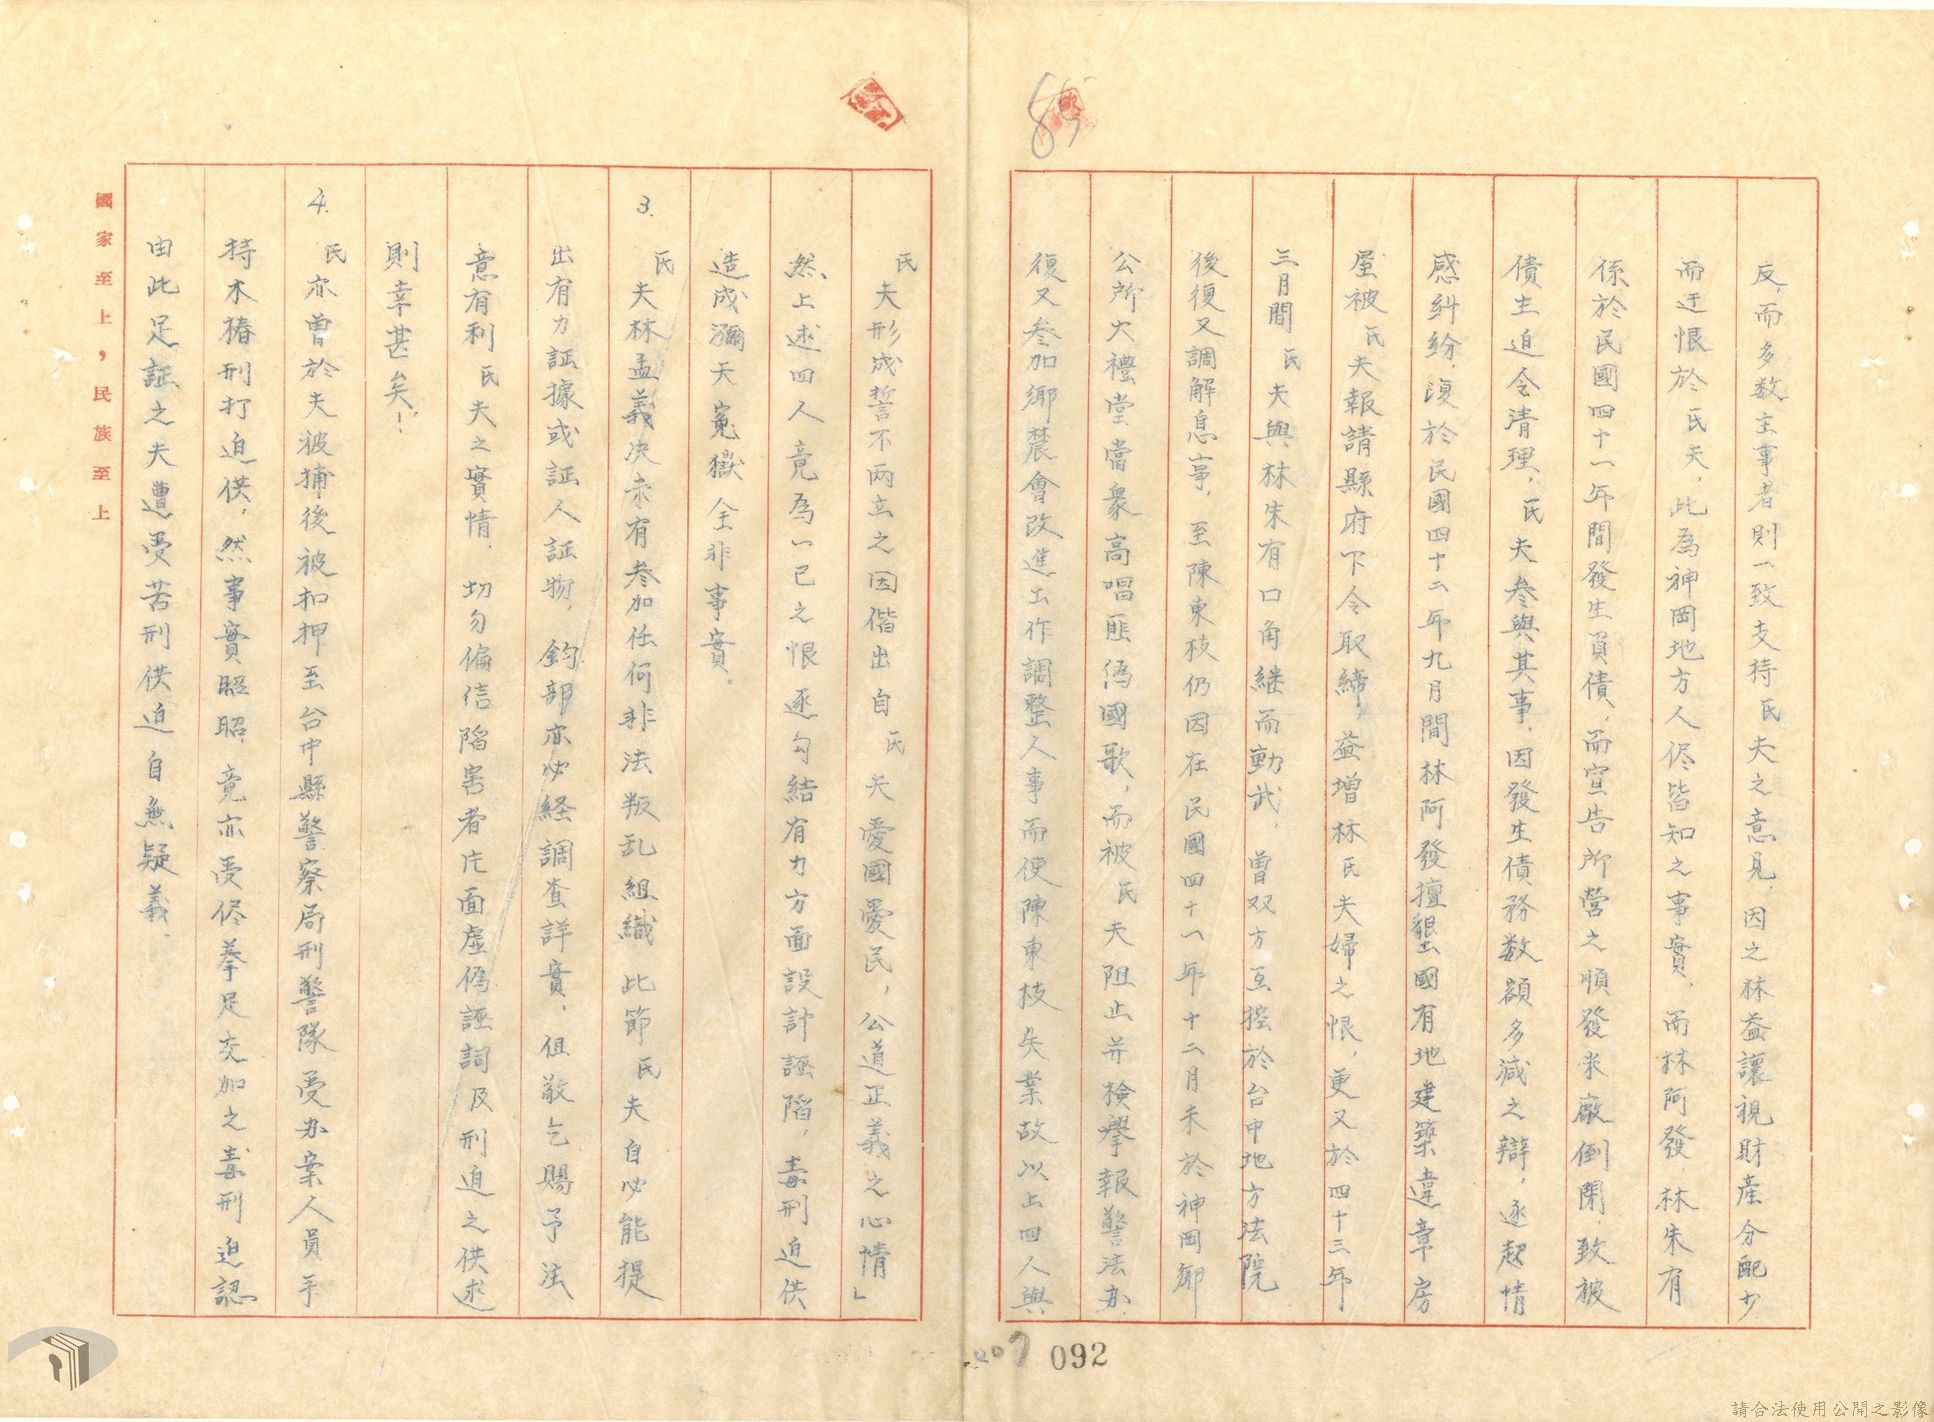 反，而多数主事者則一致支持民夫之意見，因之林益讓視財產分配少
而迁恨於民夫，此為神岡地方人侭皆知之事實，而林阿發，林朱有
係於民國四十一年間發生負債，而宣告所營之順發米廠倒閉，致被
債主迫令清理，民夫叁與其事，因發生債務数額多減之辯，逐起情
感糾纷，復於民國四十二年九月間林阿發擅墾國有地建築違章房
屋被民夫報請縣府下令取締，益增林民夫婦之恨，更又於四十三年
三月間民夫與林朱有口角継而動武，曾双方互控於台中地方法院
後復又調解息事，至陳東枝仍因在民國四十八年十二月末於神岡鄉
公所大禮堂當衆高唱匪偽國歌，而被民夫阻止并檢舉報警法办，
復又叁加鄉農會改進工作調整人事而使陳東枝失業故以上四人與
民夫形成誓不兩立之因偕出自民夫愛國愛民，公道正義之心情」
然上述四人竟為一已之恨逐勾結有力方面設計誣陷，毒刑迫供
造成彌天寃獄全非事實。
3. 民夫林孟義決未有叁加任何非法叛乱組織此節民夫自必能提
出有力証據或証人証物，鈞部亦必経調查詳實，但敬乞賜予法
意有利民夫之實情，切勿偏信陷害者片面虛偽誣詞及刑迫之供述
則幸甚矣！
4. 民亦曾於夫被捕後被扣押至台中縣警察局刑警隊受办案人員手
持木樁刑打迫供，然事實昭昭，竟亦受侭拳足交加之毒刑迫認
由此足証之夫遭受苦刑供迫自無疑義．
國家至上，民族至上
85
007
092
請合法使用公開之影像